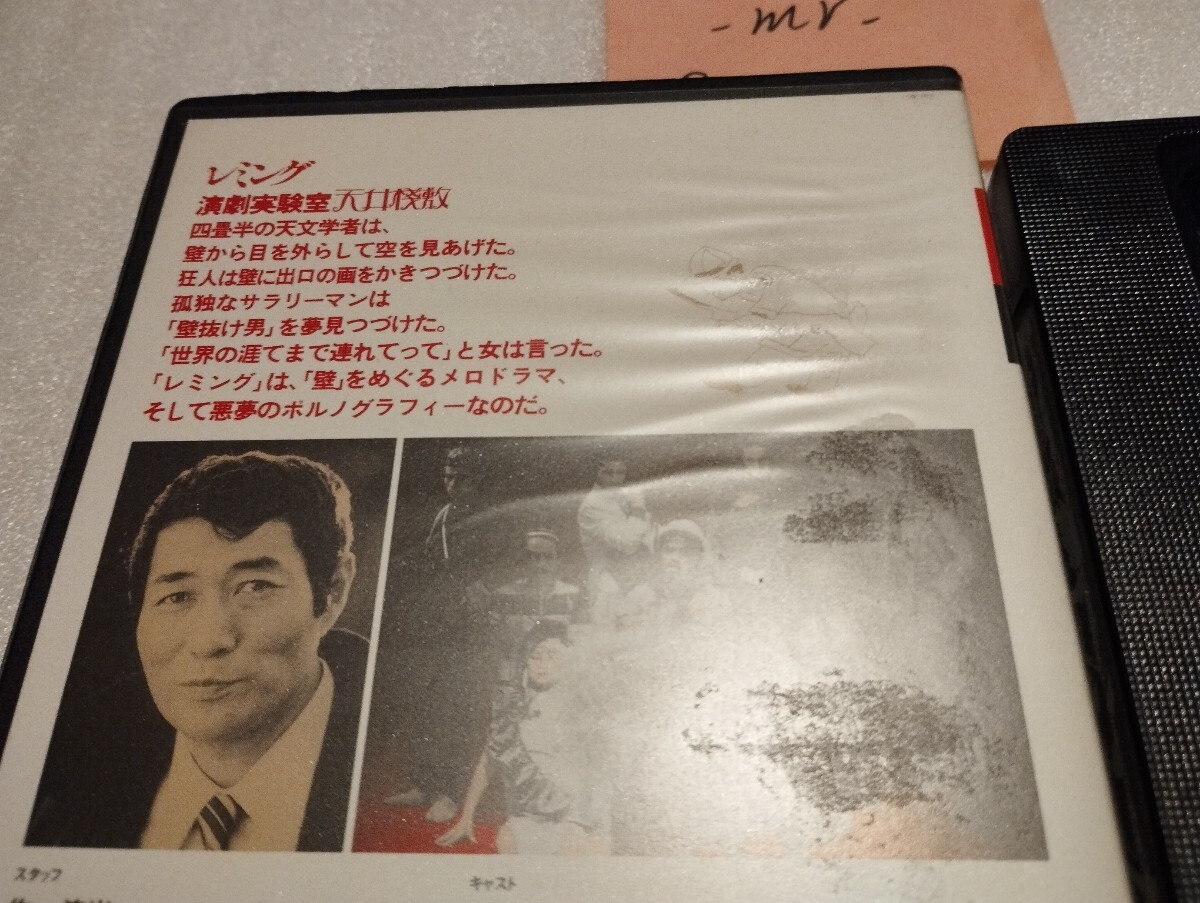 -mr-
レミング
演劇実験室天井棧敷
四畳半の天文学者は、
壁から目を外らして空を見あげた。
狂人は壁に出口の画をかきつづけた。
孤独なサラリーマンは
「壁抜け男」を夢見つづけた。
「世界の涯てまで連れてって」と女は言った。
「レミング」は、「壁」をめぐるメロドラマ、
そして悪夢のポルノグラフィーなのだ。
スタッフ
キャスト